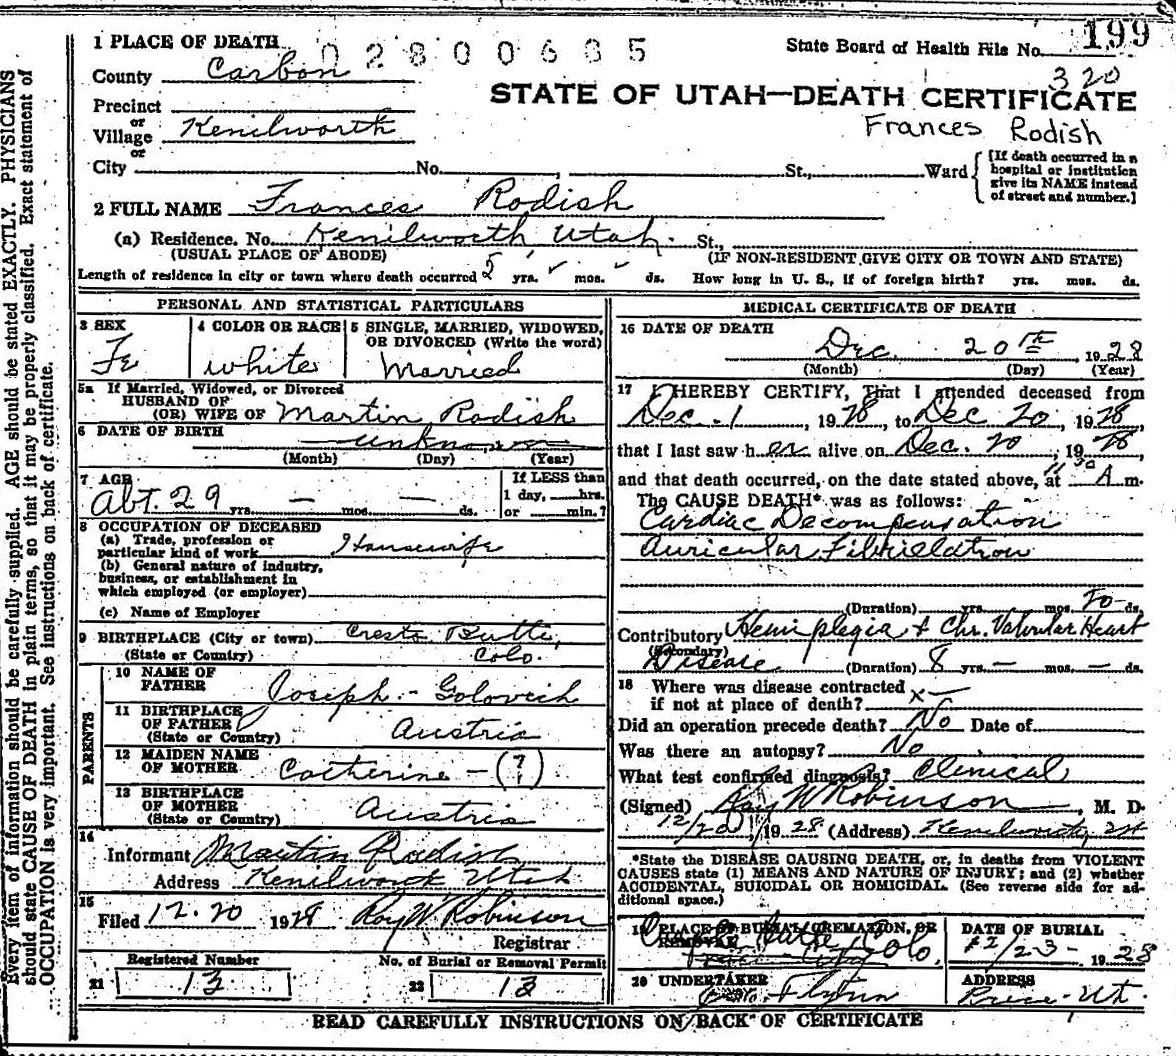 199
02800635
State Board of Health File No.
320
1 PLACE OF DEATH
County Carbon
STATE OF UTAH—DEATH CERTIFICATE
Precinct
or
Village Kenilworth
Frances Rodish
or
City No. , St., Ward
[If death occurred in a hospital or institution give its NAME instead of street and number.]
2 FULL NAME Frances Rodish
(a) Residence. No. Kenilworth Utah. St.,
(USUAL PLACE OF ABODE) (IF NON-RESIDENT GIVE CITY OR TOWN AND STATE)
Length of residence in city or town where death occurred 5 yrs. mos. ds. How long in U. S., if of foreign birth? yrs. mos. ds.
PERSONAL AND STATISTICAL PARTICULARS
3 SEX
Fe
4 COLOR OR RACE
white
5 SINGLE, MARRIED, WIDOWED,
OR DIVORCED (Write the word)
Married
5a If Married, Widowed, or Divorced
HUSBAND OF
(OR) WIFE OF Martin Rodish
6 DATE OF BIRTH unknown
(Month) (Day) (Year)
7 AGE
Abt. 29 yrs. — mos. — ds.
If LESS than
1 day, hrs.
or min.?
8 OCCUPATION OF DECEASED
(a) Trade, profession or
particular kind of work Housewife
(b) General nature of industry,
business, or establishment in
which employed (or employer)
(c) Name of Employer
9 BIRTHPLACE (City or town) Creste Butte,
(State or Country) Colo.
PARENTS
10 NAME OF
FATHER Joseph - Golovich
11 BIRTHPLACE
OF FATHER
(State or Country) Austria
12 MAIDEN NAME
OF MOTHER Catherine - (?)
13 BIRTHPLACE
OF MOTHER
(State or Country) Austria
14
Informant Martin Rodish
Address Kenilworth Utah
15
Filed 12-20 1928 Roy W. Robinson
Registrar
Registered Number No. of Burial or Removal Permit
21 13 22 13
MEDICAL CERTIFICATE OF DEATH
16 DATE OF DEATH
Dec. 20th, 1928
(Month) (Day) (Year)
17 I HEREBY CERTIFY, That I attended deceased from
Dec. 1, 1928, to Dec 20, 1928,
that I last saw her alive on Dec. 20, 1928,
and that death occurred, on the date stated above, at 11 30 A m.
The CAUSE DEATH* was as follows:
Cardiac Decompensation
Auricular Fibrillation
(Duration) yrs. mos. 20 ds.
Contributory Hemiplegia + Chr. Valvular Heart
(Secondary)
Disease (Duration) 8 yrs. — mos. — ds.
18 Where was disease contracted
if not at place of death? x —
Did an operation precede death? No Date of
Was there an autopsy? No
What test confirmed diagnosis? Clinical
(Signed) Roy W Robinson, M. D.
12/20 1928 (Address) Kenilworth, Ut
*State the DISEASE CAUSING DEATH, or, in deaths from VIOLENT
CAUSES state (1) MEANS AND NATURE OF INJURY; and (2) whether
ACCIDENTAL, SUICIDAL OR HOMICIDAL. (See reverse side for ad-
ditional space.)
19 PLACE OF BURIAL, CREMATION, OR
REMOVAL
Butte Colo.
DATE OF BURIAL
12/23- 1928
20 UNDERTAKER
Flynn
ADDRESS
Price - Ut.
READ CAREFULLY INSTRUCTIONS ON BACK OF CERTIFICATE
Every item of information should be carefully supplied. AGE should be stated EXACTLY. PHYSICIANS
should state CAUSE OF DEATH in plain terms, so that it may be properly classified. Exact statement of
OCCUPATION is very important. See instructions on back of certificate.